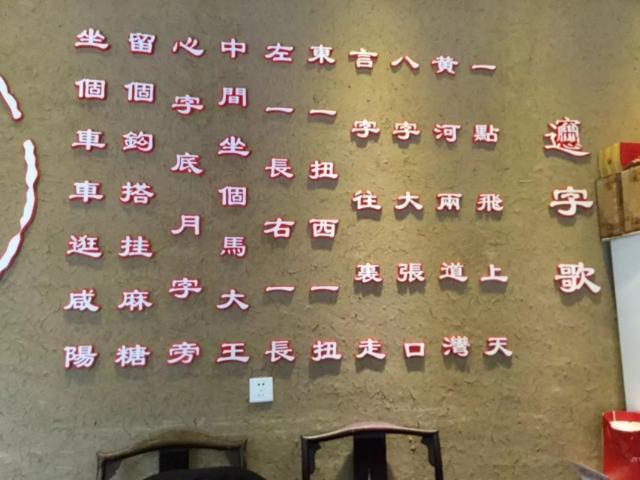 𰻞字歌
一點飛上天
黃河兩道灣
八字大張口
言字往裏走
東一扭西一扭
左一長右一長
中間坐個馬大王
心字底月字旁
留個鈎搭挂麻糖
坐個車車逛咸陽